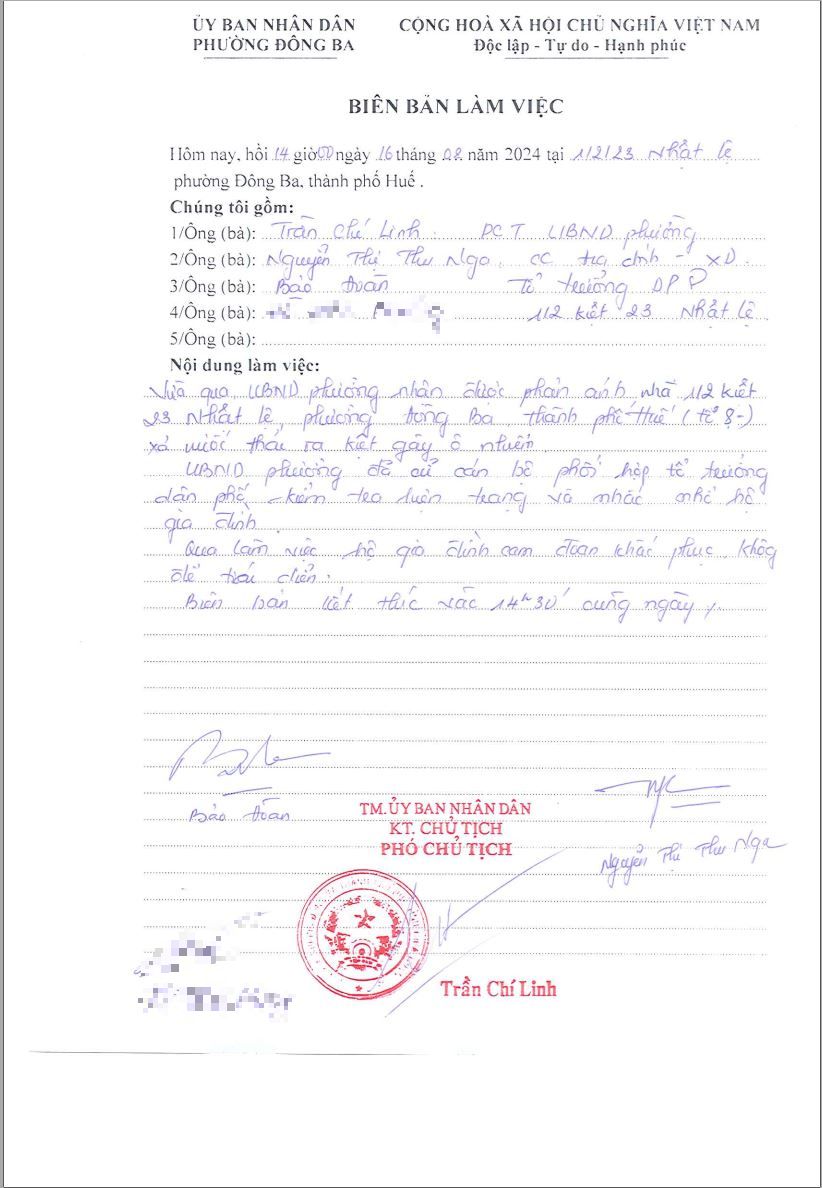 ỦY BAN NHÂN DÂN
PHƯỜNG ĐÔNG BA
CỘNG HOÀ XÃ HỘI CHỦ NGHĨA VIỆT NAM
Độc lập - Tự do - Hạnh phúc
BIÊN BẢN LÀM VIỆC
Hôm nay, hồi 14 giờ 00 ngày 16 tháng 08 năm 2024 tại 112/23 Nhật lệ
phường Đông Ba, thành phố Huế .
Chúng tôi gồm:
1/Ông (bà): Trần Chí Linh . PCT UBND phường
2/Ông (bà): Nguyễn Thị Thu Nga . CC địa chính - XD.
3/Ông (bà): Bảo Tổ trưởng DP
4/Ông (bà): 112 kiệt 23 Nhật lệ .
5/Ông (bà):
Nội dung làm việc:
Vừa qua UBND phường nhận được phản ánh nhà 112 kiệt
23 Nhật lệ, phường Đông Ba, thành phố Huế (tổ 8 -)
xả nước thải ra kiệt gây ô nhiễm
UBND phường đã cử cán bộ phối hợp tổ trưởng
dân phố kiểm tra hiện trạng và nhắc nhở hộ
gia đình .
Qua làm việc hộ gia đình cam đoan khắc phục không
để tái diễn .
Biên bản kết thúc vào 14h30' cùng ngày
Bảo
TM.ỦY BAN NHÂN DÂN
KT. CHỦ TỊCH
PHÓ CHỦ TỊCH
Nguyễn Thị Thu Nga
Trần Chí Linh